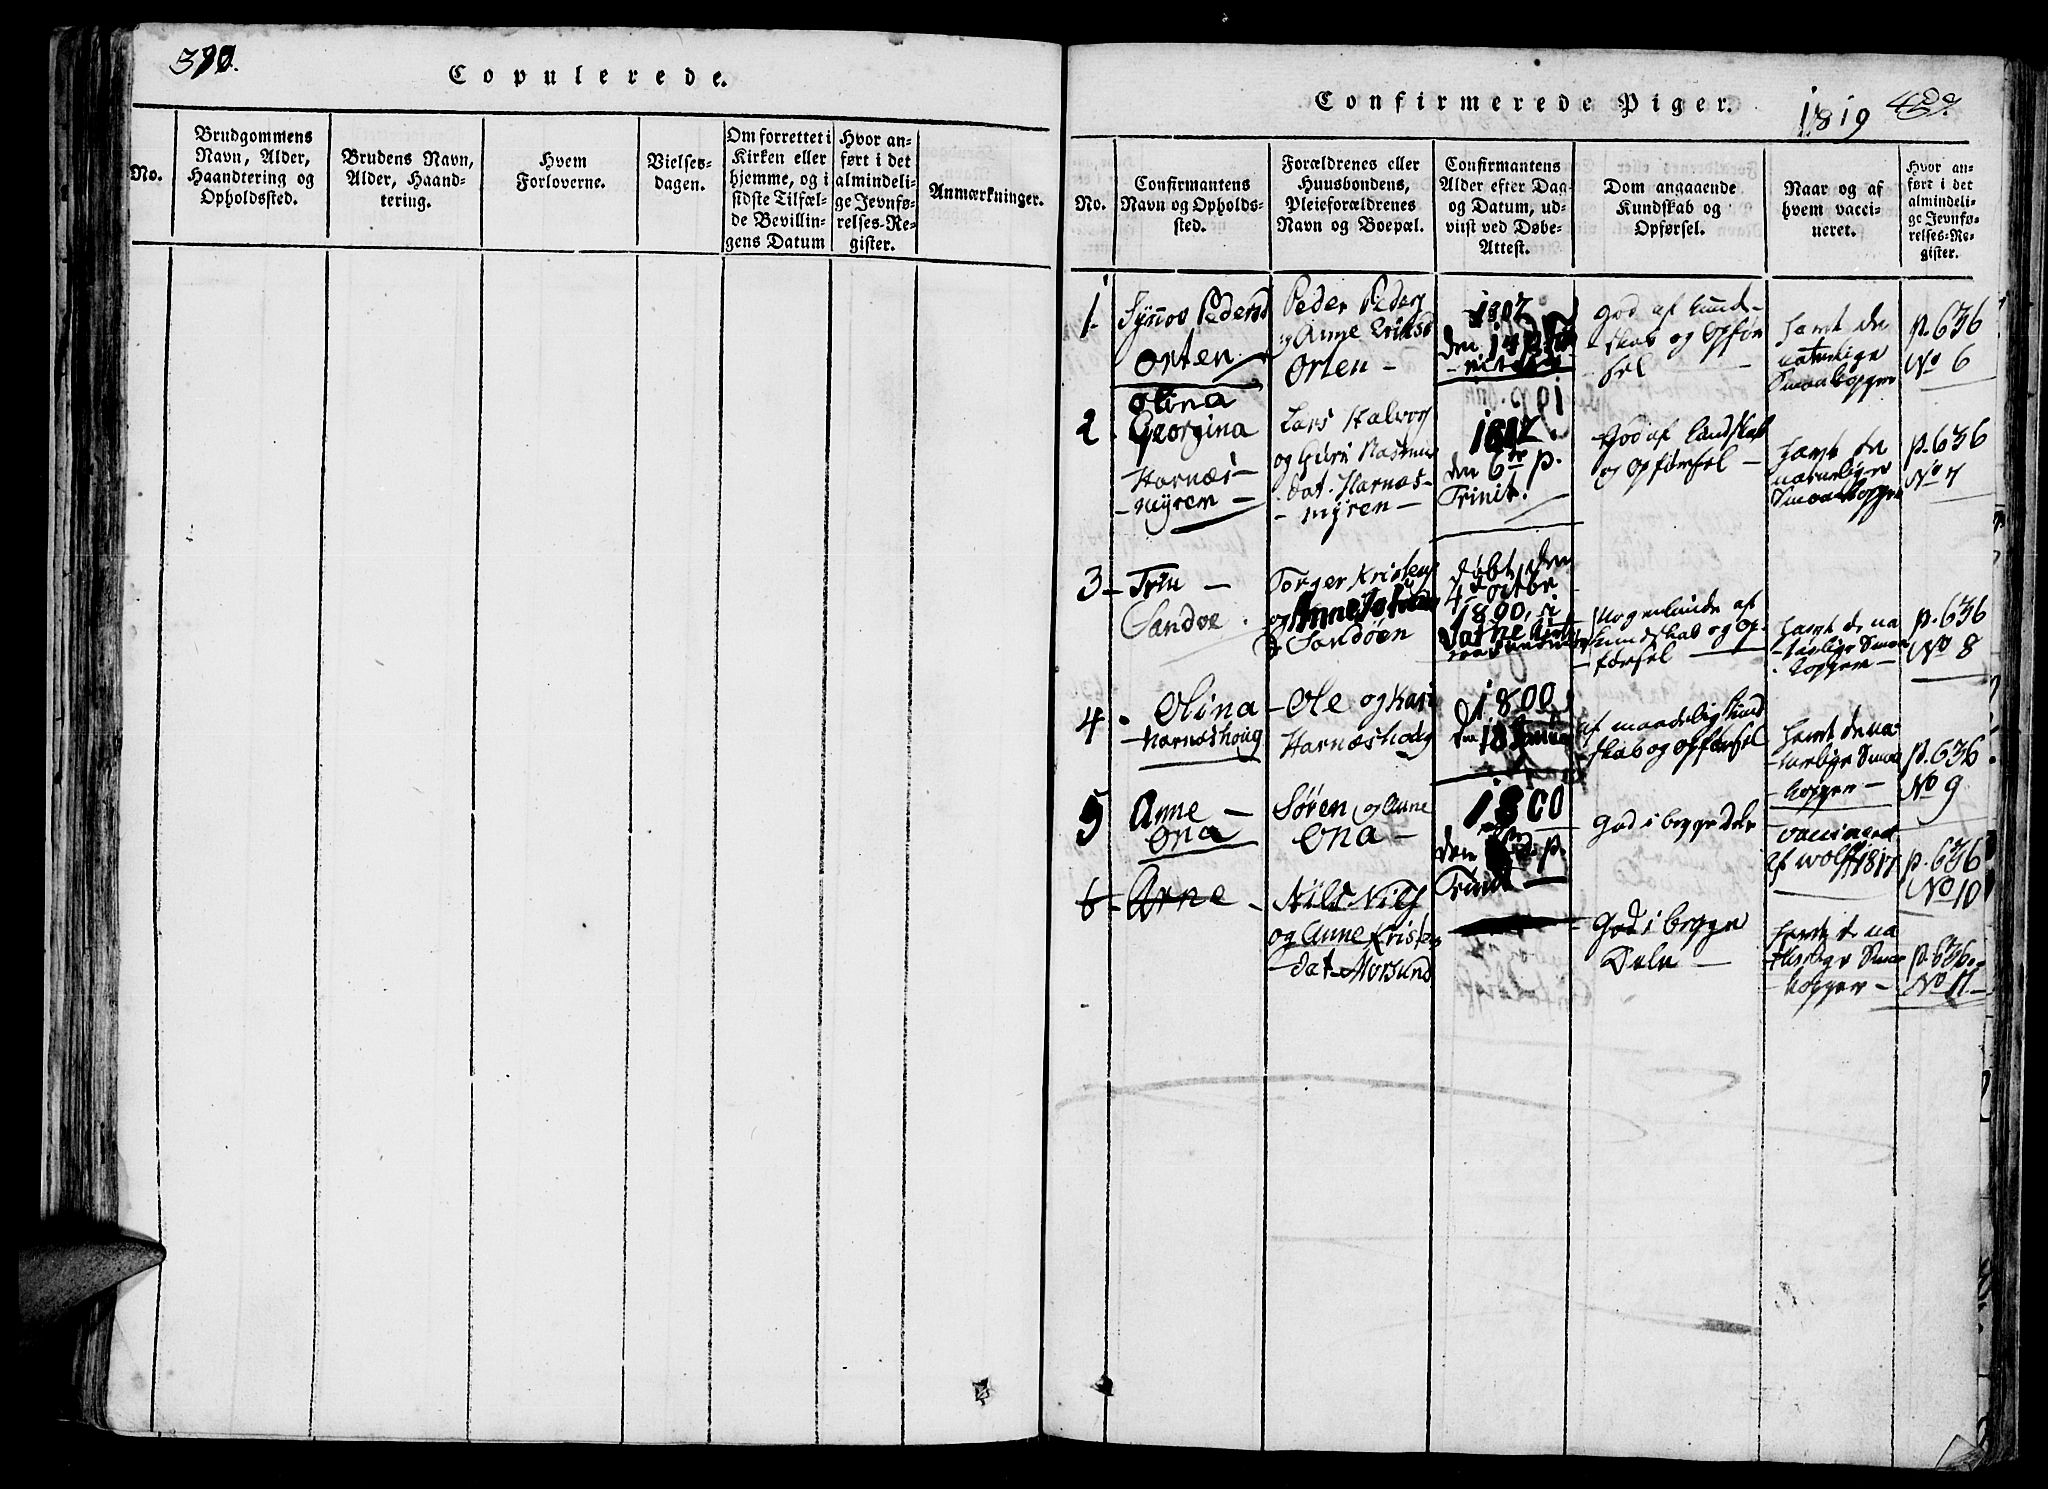 Copulerede.
No.
Brudgommens
Navn, Alder,
Haandtering og
Opholdssted.
Brudens Navn,
Alder, Haand-
tering.
Hvem
Forloverne.
Vielses-
dagen.
Om forrettet i
Kirken eller
hjemme, og i
sidste Tilfæl-
de Bevillin-
gens Datum
Hvor an-
ført i det
almindeli-
ge Jevnfø-
relses-Re-
gister.
Anmærkninger.
Confirmerede Piger.
1819
No.
Confirmantens
Navn og Opholds-
sted.
Forældrenes eller
Huusbondens,
Pleieforældrenes
Navn og Boepæl.
Confirmantens
Alder efter Dag
og Datum, ud-
viist ved Døbe-
Attest.
Dom angaaende
Kundskab og
Opførsel.
Naar og af
hvem vacci-
neret.
Hvor an-
ført i det
almindeli-
ge Jevnfø-
relses-Re-
gister.
1
Synnos Pedersd
Orten
Peder Peders
og Anne Eriksd
Orten -
1802
den
god af Kund-
skab og Opfør
sel
havt de
naturlige
Smaakopper
p. 636
No 6
2.
Olina
Georgina
Harnæs-
- myren -
Lars Halvors
og Guri Rasmus
dat. Harnæs-
- myren -
1802.
den 6te p.
Trinit.
God af Kundskab
og Opførsel -
havt de
naturlige
Smaakopper
p. 636
No 7
3 -
Trin -
Sandøe.
Torger Kristens
og Anne
Sandøen
døbt den
4de Octbr
1800, i
Nogenlunde af
Kundskab og Op-
førsel
havt de na
- turlige Smaa
kopper -
p. 636
No 8
4.
Olina
- Harnæshoug
- Ole og Kari
Harnæshoug
1800
den 18
af maadelig Kund
skab og Opførsel
havt de na-
- turlige Smaa
- kopper -
p. 636
No 9
5
Anne -
Ona
Søren og Anne
Ona -
1800
den p.
Trinit -
God i begge Dele
vaccineret
af Wolff 1817
p. 636
No 10
6 -
Arne -
Nils Nils
og Anne Kristens
- dat Morsund
God i begge
Dele -
havt de na
- turlige Smaa
- kopper -
p. 636
No 11 -